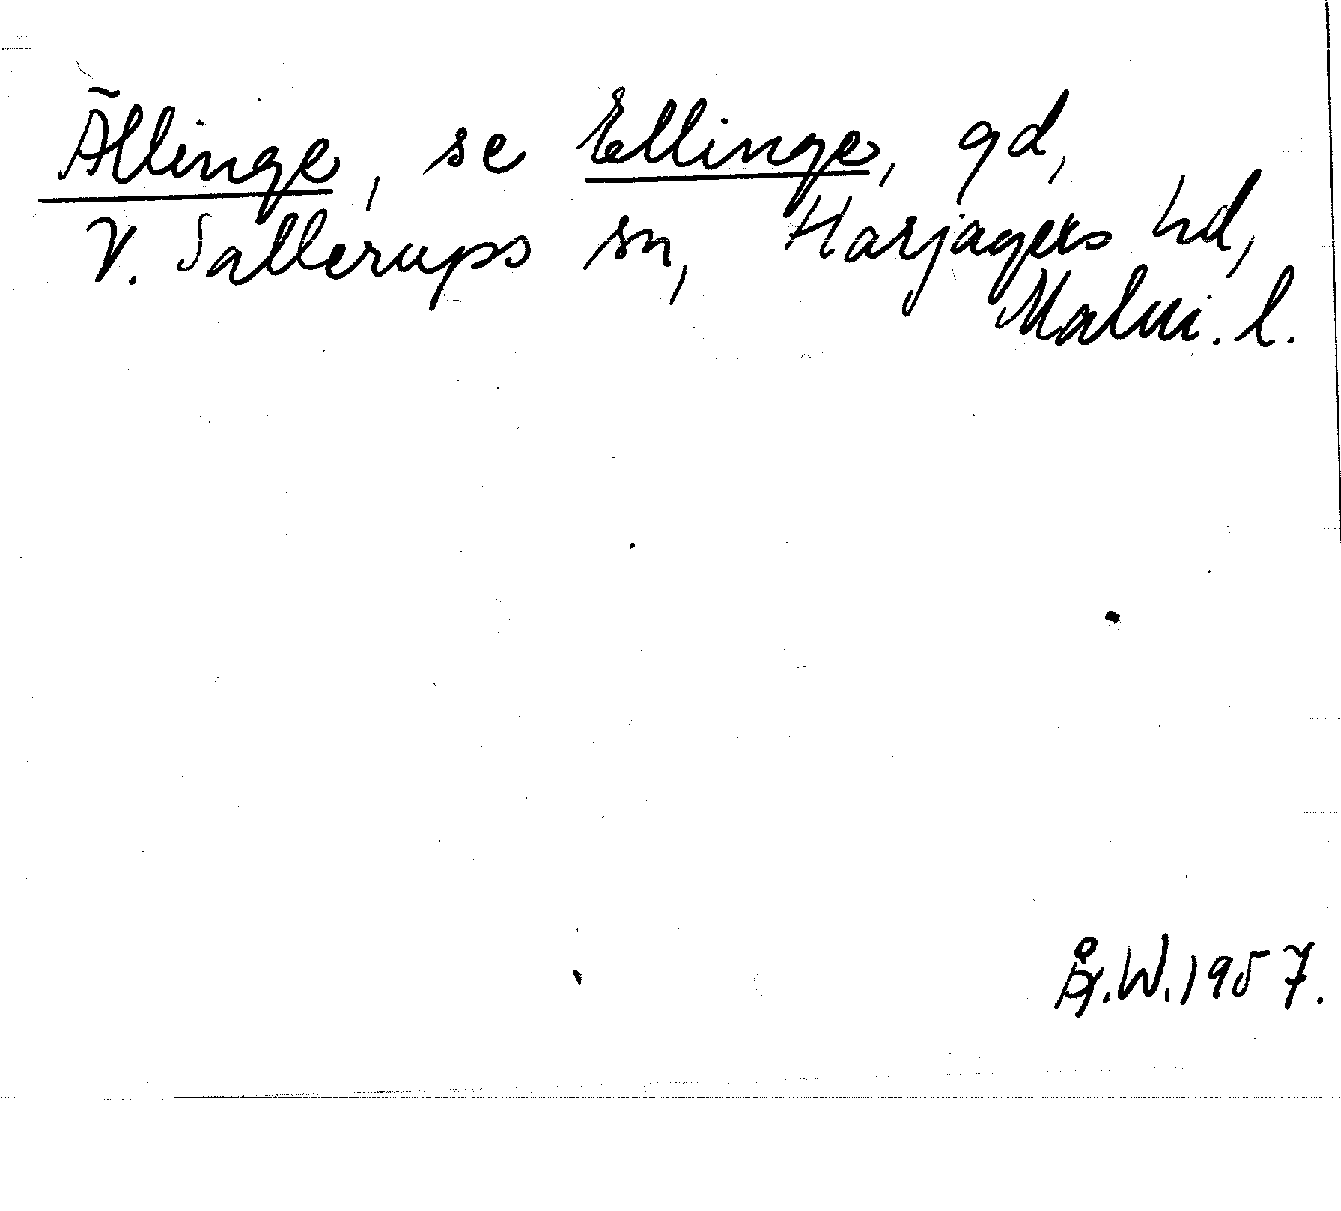 Ällinge, se Ellinge, gd,
V. Sallerups sn, Harjagers hd,
Malm. l.
Å.W. 1957.